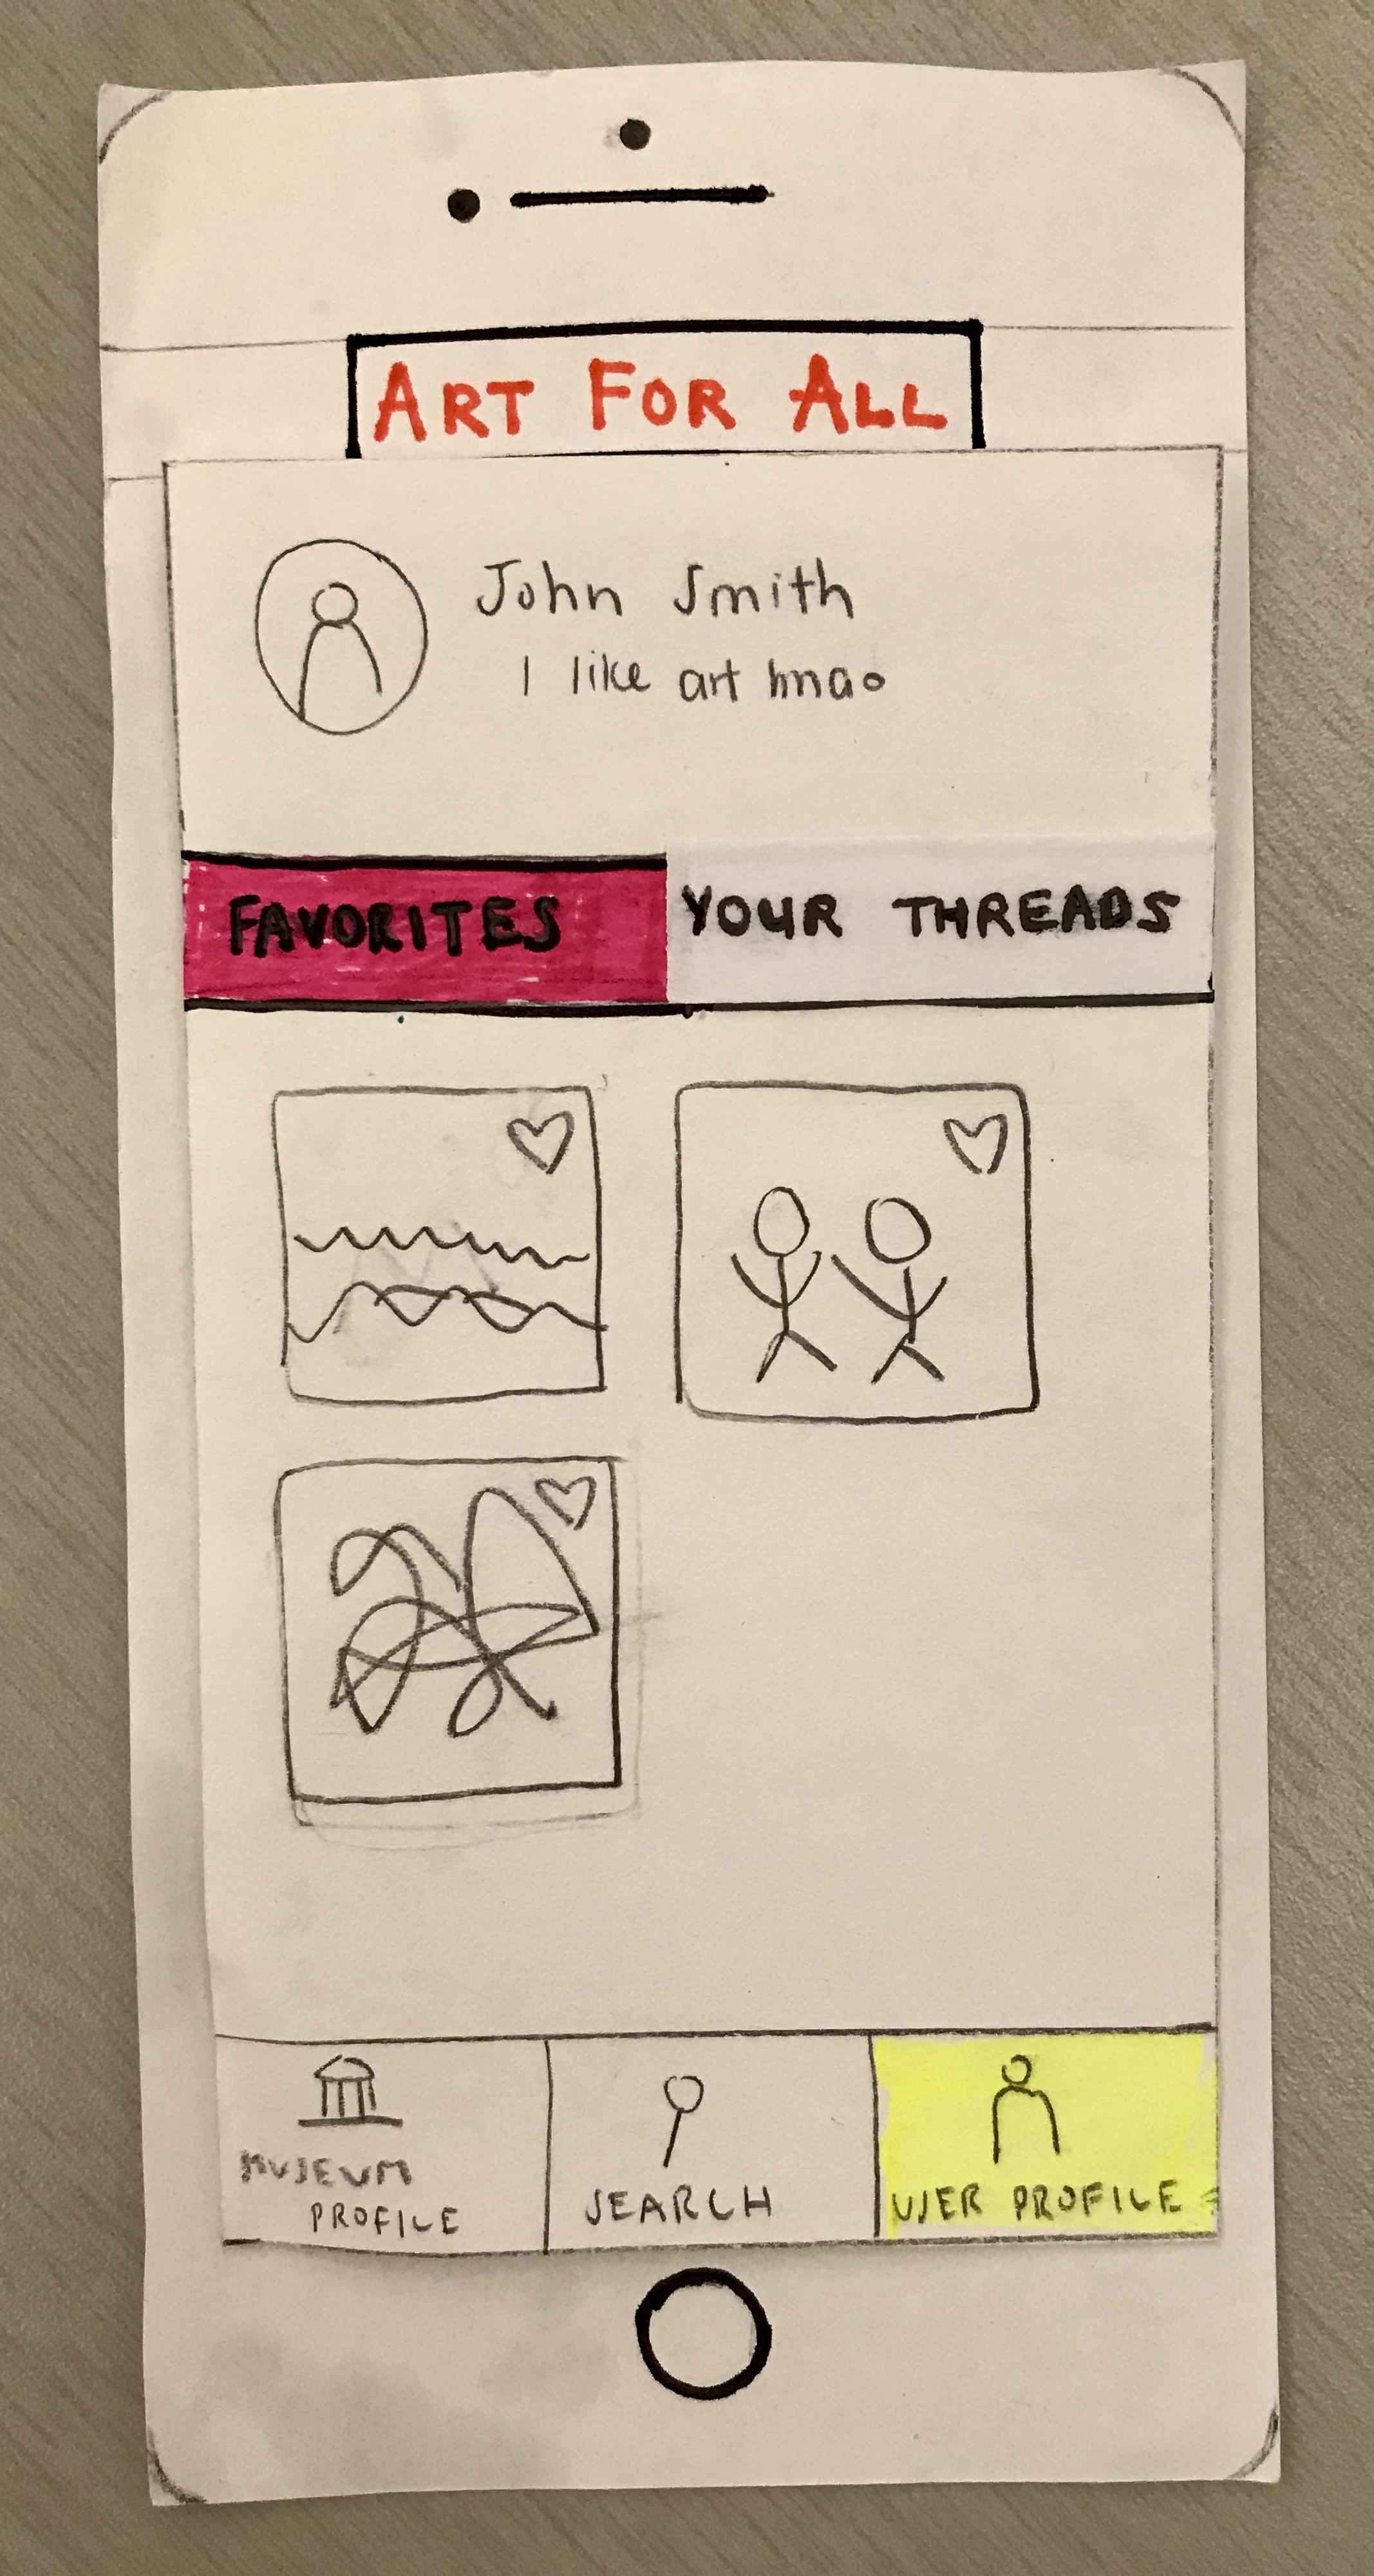 ART FOR ALL
John Smith
I like art lmao
FAVORITES YOUR THREADS
MUSEUM PROFILE
SEARCH
USER PROFILE